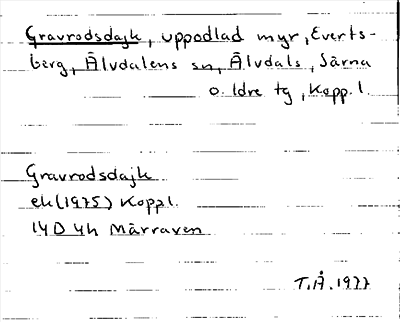 Gravrodsdajk, uppodlad myr, Everts-
berg, Älvdalens sn, Älvdals, Särna
o. Idre tg, Kopp. l.
Gravrodsdajk
ek (1975) Koppl.
14D 4h Märraven
T.Å. 1977